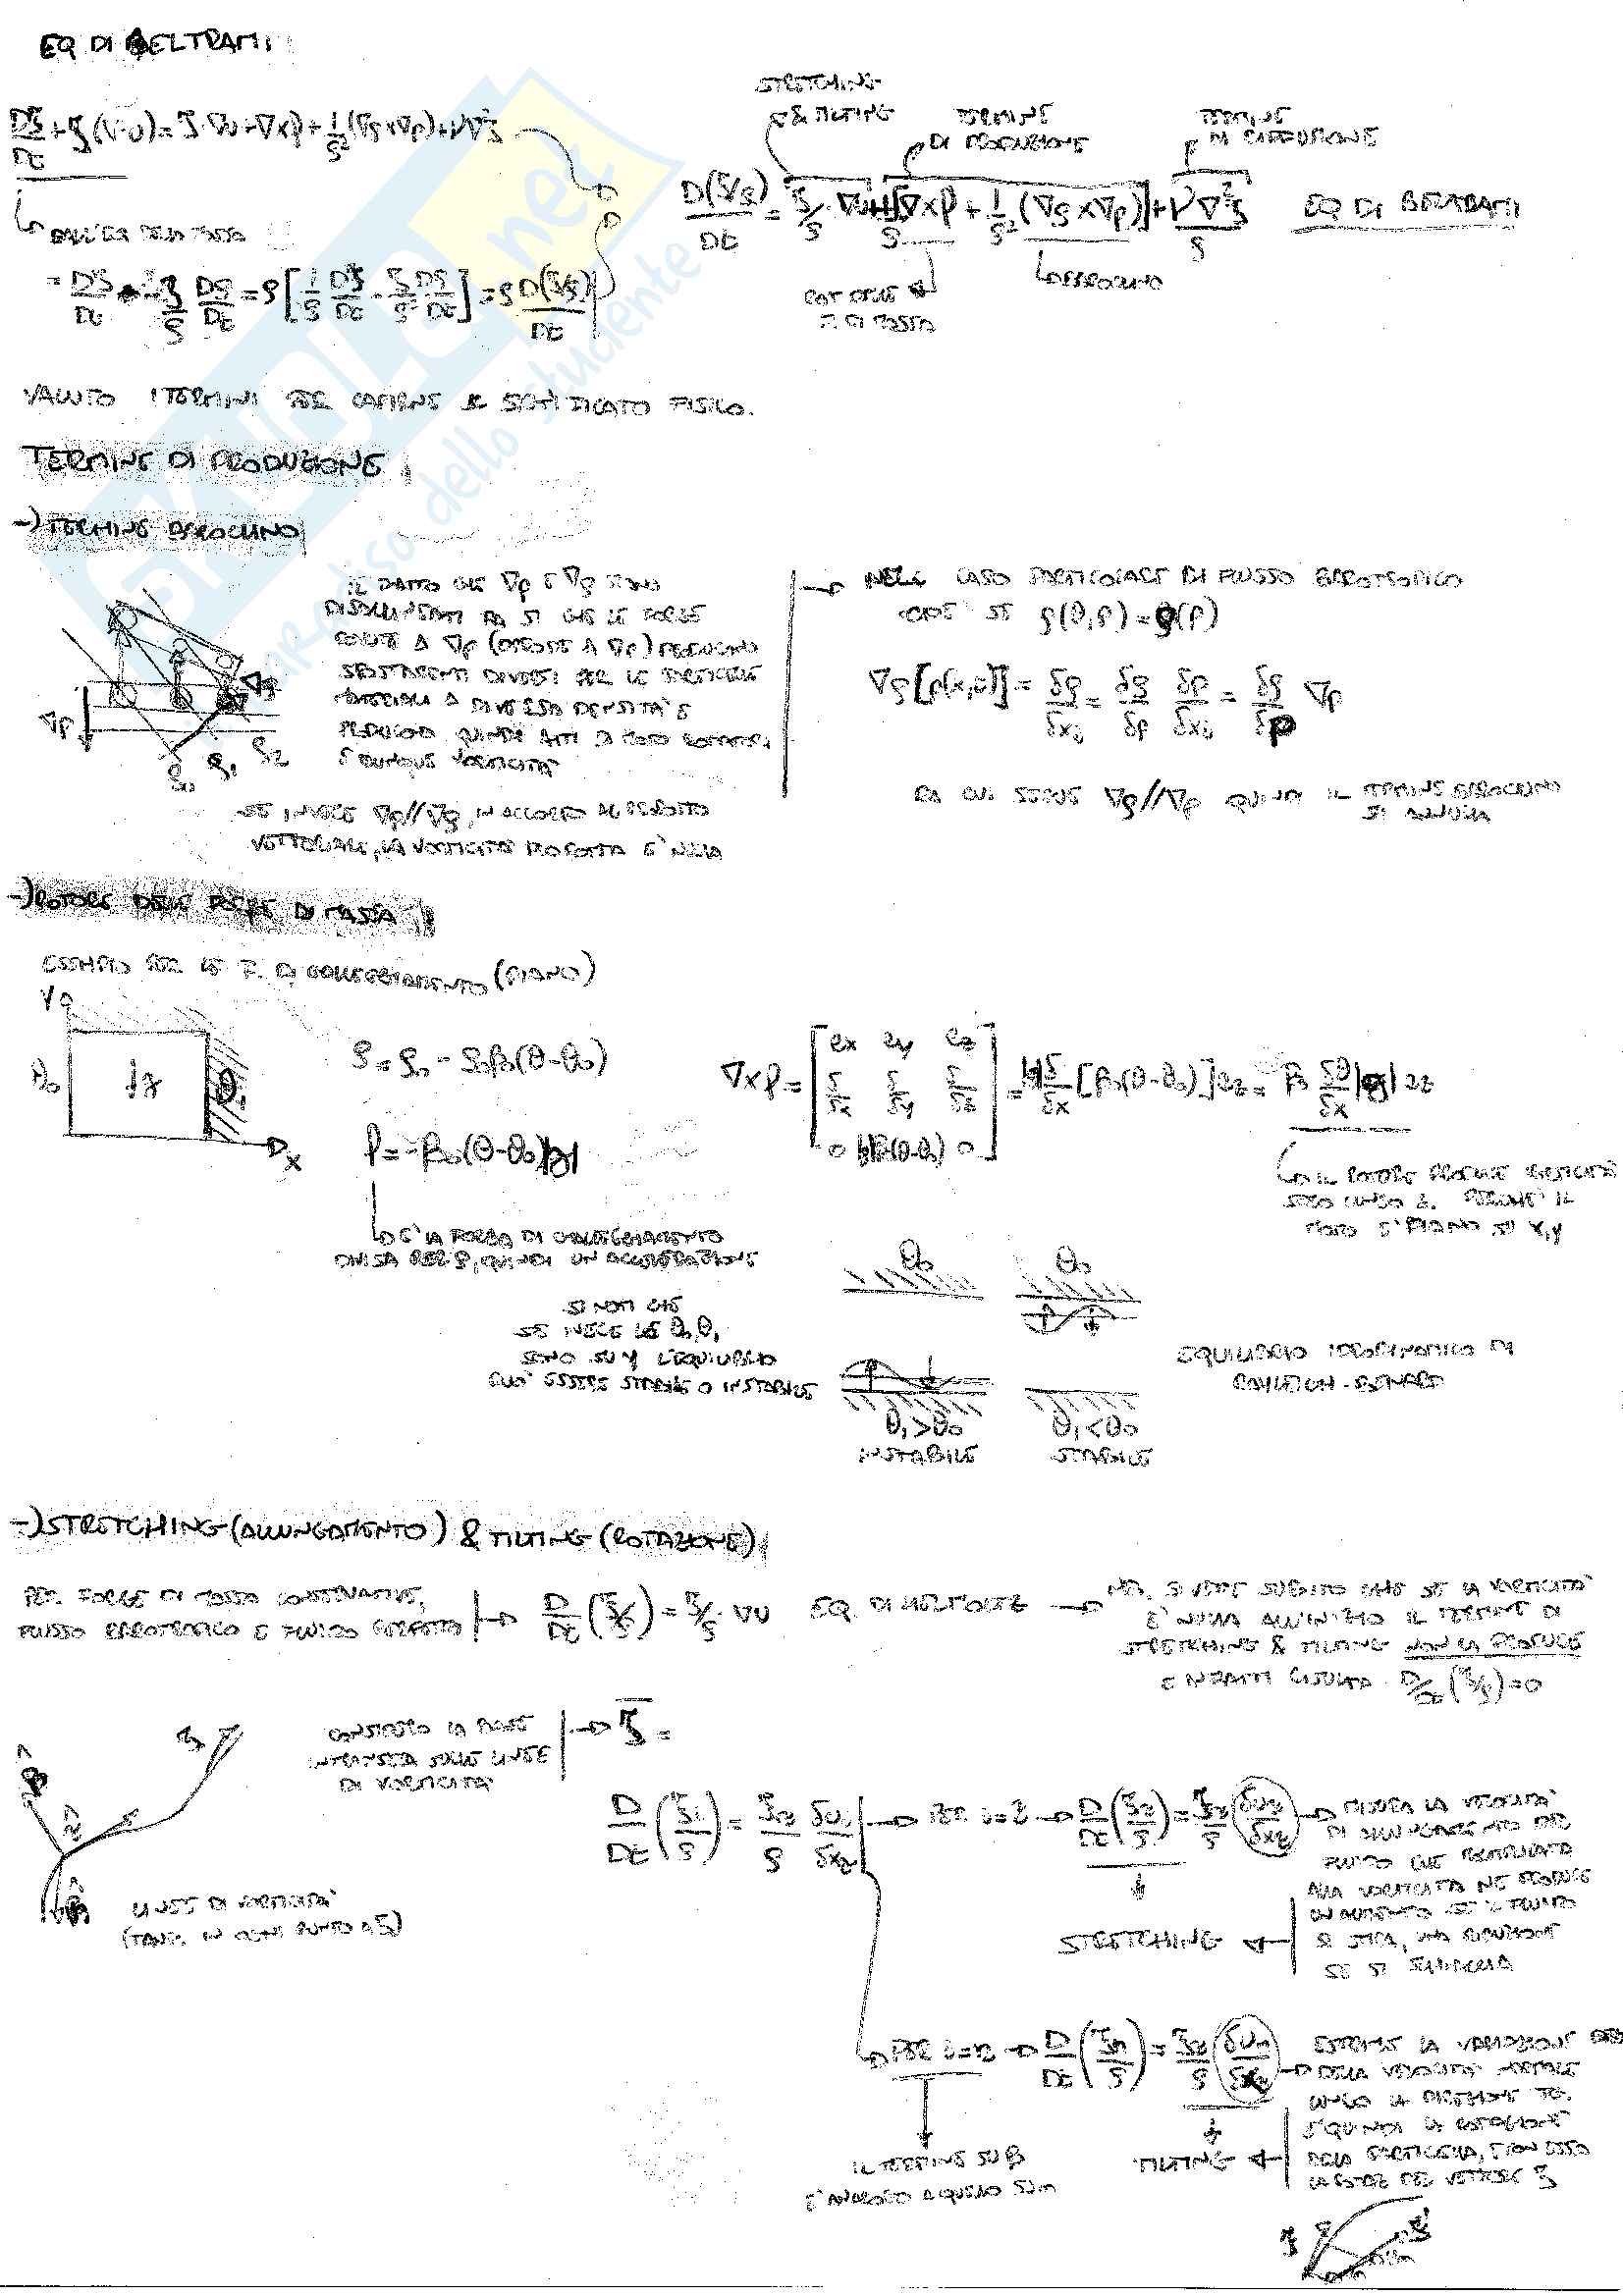 EQ DI BELTRAMI
Dζ/Dt + ζ(∇·U) = ζ·∇U + ∇×f + 1/ρ² (∇ρ×∇p) + ν∇²ζ
STRETCHING
& TILTING
TERMINE
DI PRODUZIONE
TERMINE
DI DIFFUSIONE
D(ζ/ρ)/Dt = ζ/ρ · ∇U + 1/ρ [∇×f + 1/ρ² (∇ρ×∇p)] + ν∇²ζ/ρ
EQ DI BELTRAMI
= Dζ/Dt - ζ/ρ Dρ/Dt = ρ [1/ρ Dζ/Dt - ζ/ρ² Dρ/Dt] = ρ D(ζ/ρ)/Dt
ROT DELLE
F. DI MASSA
BEROCLINO
VALUTO I TERMINI PER CAPIRNE IL SIGNIFICATO FISICO.
TERMINE DI PRODUZIONE
-) TERMINE BEROCLINO
IL FATTO CHE ∇p E ∇ρ SIANO
DISALLINEATI FA SI CHE LE FORZE
DOVUTE A ∇p (OPPOSTE A ∇p) PRODUCANO
SPOSTAMENTI DIVERSI PER LE PARTICELLE
MATERIALI A DIVERSA DENSITA' E
PRODUCONO QUINDI ATTI DI MOTO ROTATORI
E DUNQUE VORTICITA'
∇p
∇ρ
ρ0 ρ1 ρ2
SE INVECE ∇p//∇ρ, IN ACCORDO AL PRODOTTO
VETTORIALE, LA VORTICITA' PRODOTTA E' NULLA
NEL CASO PARTICOLARE DI FLUSSO BAROTROPICO
CIOE' SE ρ(θ,p) = ρ(p)
∇ρ[p(x,t)] = δρ/δxi = δρ/δp δp/δxi = δρ/δp ∇p
DA CUI SEGUE ∇ρ//∇p QUINDI IL TERMINE BEROCLINO
SI ANNULLA
-) ROTORE DELLE FORZE DI MASSA
ESEMPIO PER LE F. DI GALLEGGIAMENTO (PIANO)
Y
θ0
g
θ1
X
ρ = ρ0 - ρ0β0(θ-θ0)
f = -β0(θ-θ0)|g|
E' LA FORZA DI GALLEGGIAMENTO
DIVISA PER ρ, QUINDI UN'ACCELERAZIONE
∇×f = [ex ey ez
δ/δx δ/δy δ/δz
0 |g|β(θ-θ0) 0] = |g| δ/δx [β0(θ-θ0)] ez = β0 δθ/δx |g| ez
IL ROTORE PRODUCE VORTICITA'
SOLO LUNGO Z. PERCHE' IL
MOTO E' PIANO SU X,Y
SI NOTI CHE
SE INVECE LE θ0,θ1
SONO SU Y L'EQUILIBRIO
PUO' ESSERE STABILE O INSTABILE
θ0
θ0
θ1>θ0
θ1<θ0
INSTABILE
STABILE
EQUILIBRIO IDRODINAMICO DI
RAYLEIGH-BENARD
-) STRETCHING (ALLUNGAMENTO) & TILTING (ROTAZIONE)
PER FORZE DI MASSA CONSERVATIVE,
FLUSSO BAROTROPICO E FLUIDO PERFETTO
D/Dt (ζ/ρ) = ζ/ρ · ∇U EQ. DI HELMOLTZ
SI VEDE SUBITO CHE SE LA VORTICITA'
E' NULLA ALL'INIZIO IL TERMINE DI
STRETCHING & TILTING NON LA PRODUCE
E INFATTI RISULTA D/Dt (ζ/ρ) = 0
CONSIDERO LA BASE
INTRINSECA SULLE LINEE
DI VORTICITA'
ζ =
ζ
LINEE DI VORTICITA'
(TANG. IN OGNI PUNTO A ζ)
D/Dt (ζi/ρ) = ζz/ρ δUi/δxz
PER i=z D/Dt (ζz/ρ) = ζz/ρ (δUz/δxz)
MISURA LA VELOCITA'
DI ALLUNGAMENTO DEL
FLUIDO CHE
ALLA VORTICITA' NE PRODUCE
UN AUMENTO SE IL FLUIDO
SI STIRA, UNA RIDUZIONE
SE SI SCHIACCIA
STRETCHING
PER i=n D/Dt (ζn/ρ) = ζz/ρ (δUn/δxz)
ESPRIME LA VARIAZIONE
DELLA VELOCITA' NORMALE
LUNGO LA DIREZIONE TG.
E' QUINDI LA ROTAZIONE
DELLA PARTICELLA, E CON ESSO
LA ROTAZ DEL VETTORE ζ
TILTING
IL TERMINE SU β
E' ANALOGO A QUELLO SU n